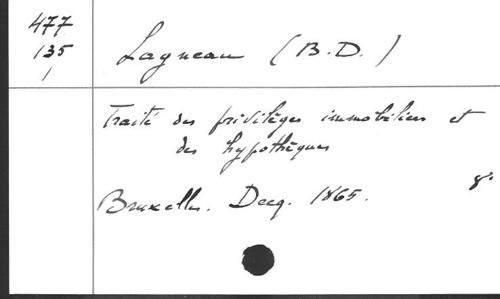 477
135
1
Lagneau (B.D.)
Traité des privilèges immobiliers et
des hypothèques
Bruxelles. Decq. 1865. 8°